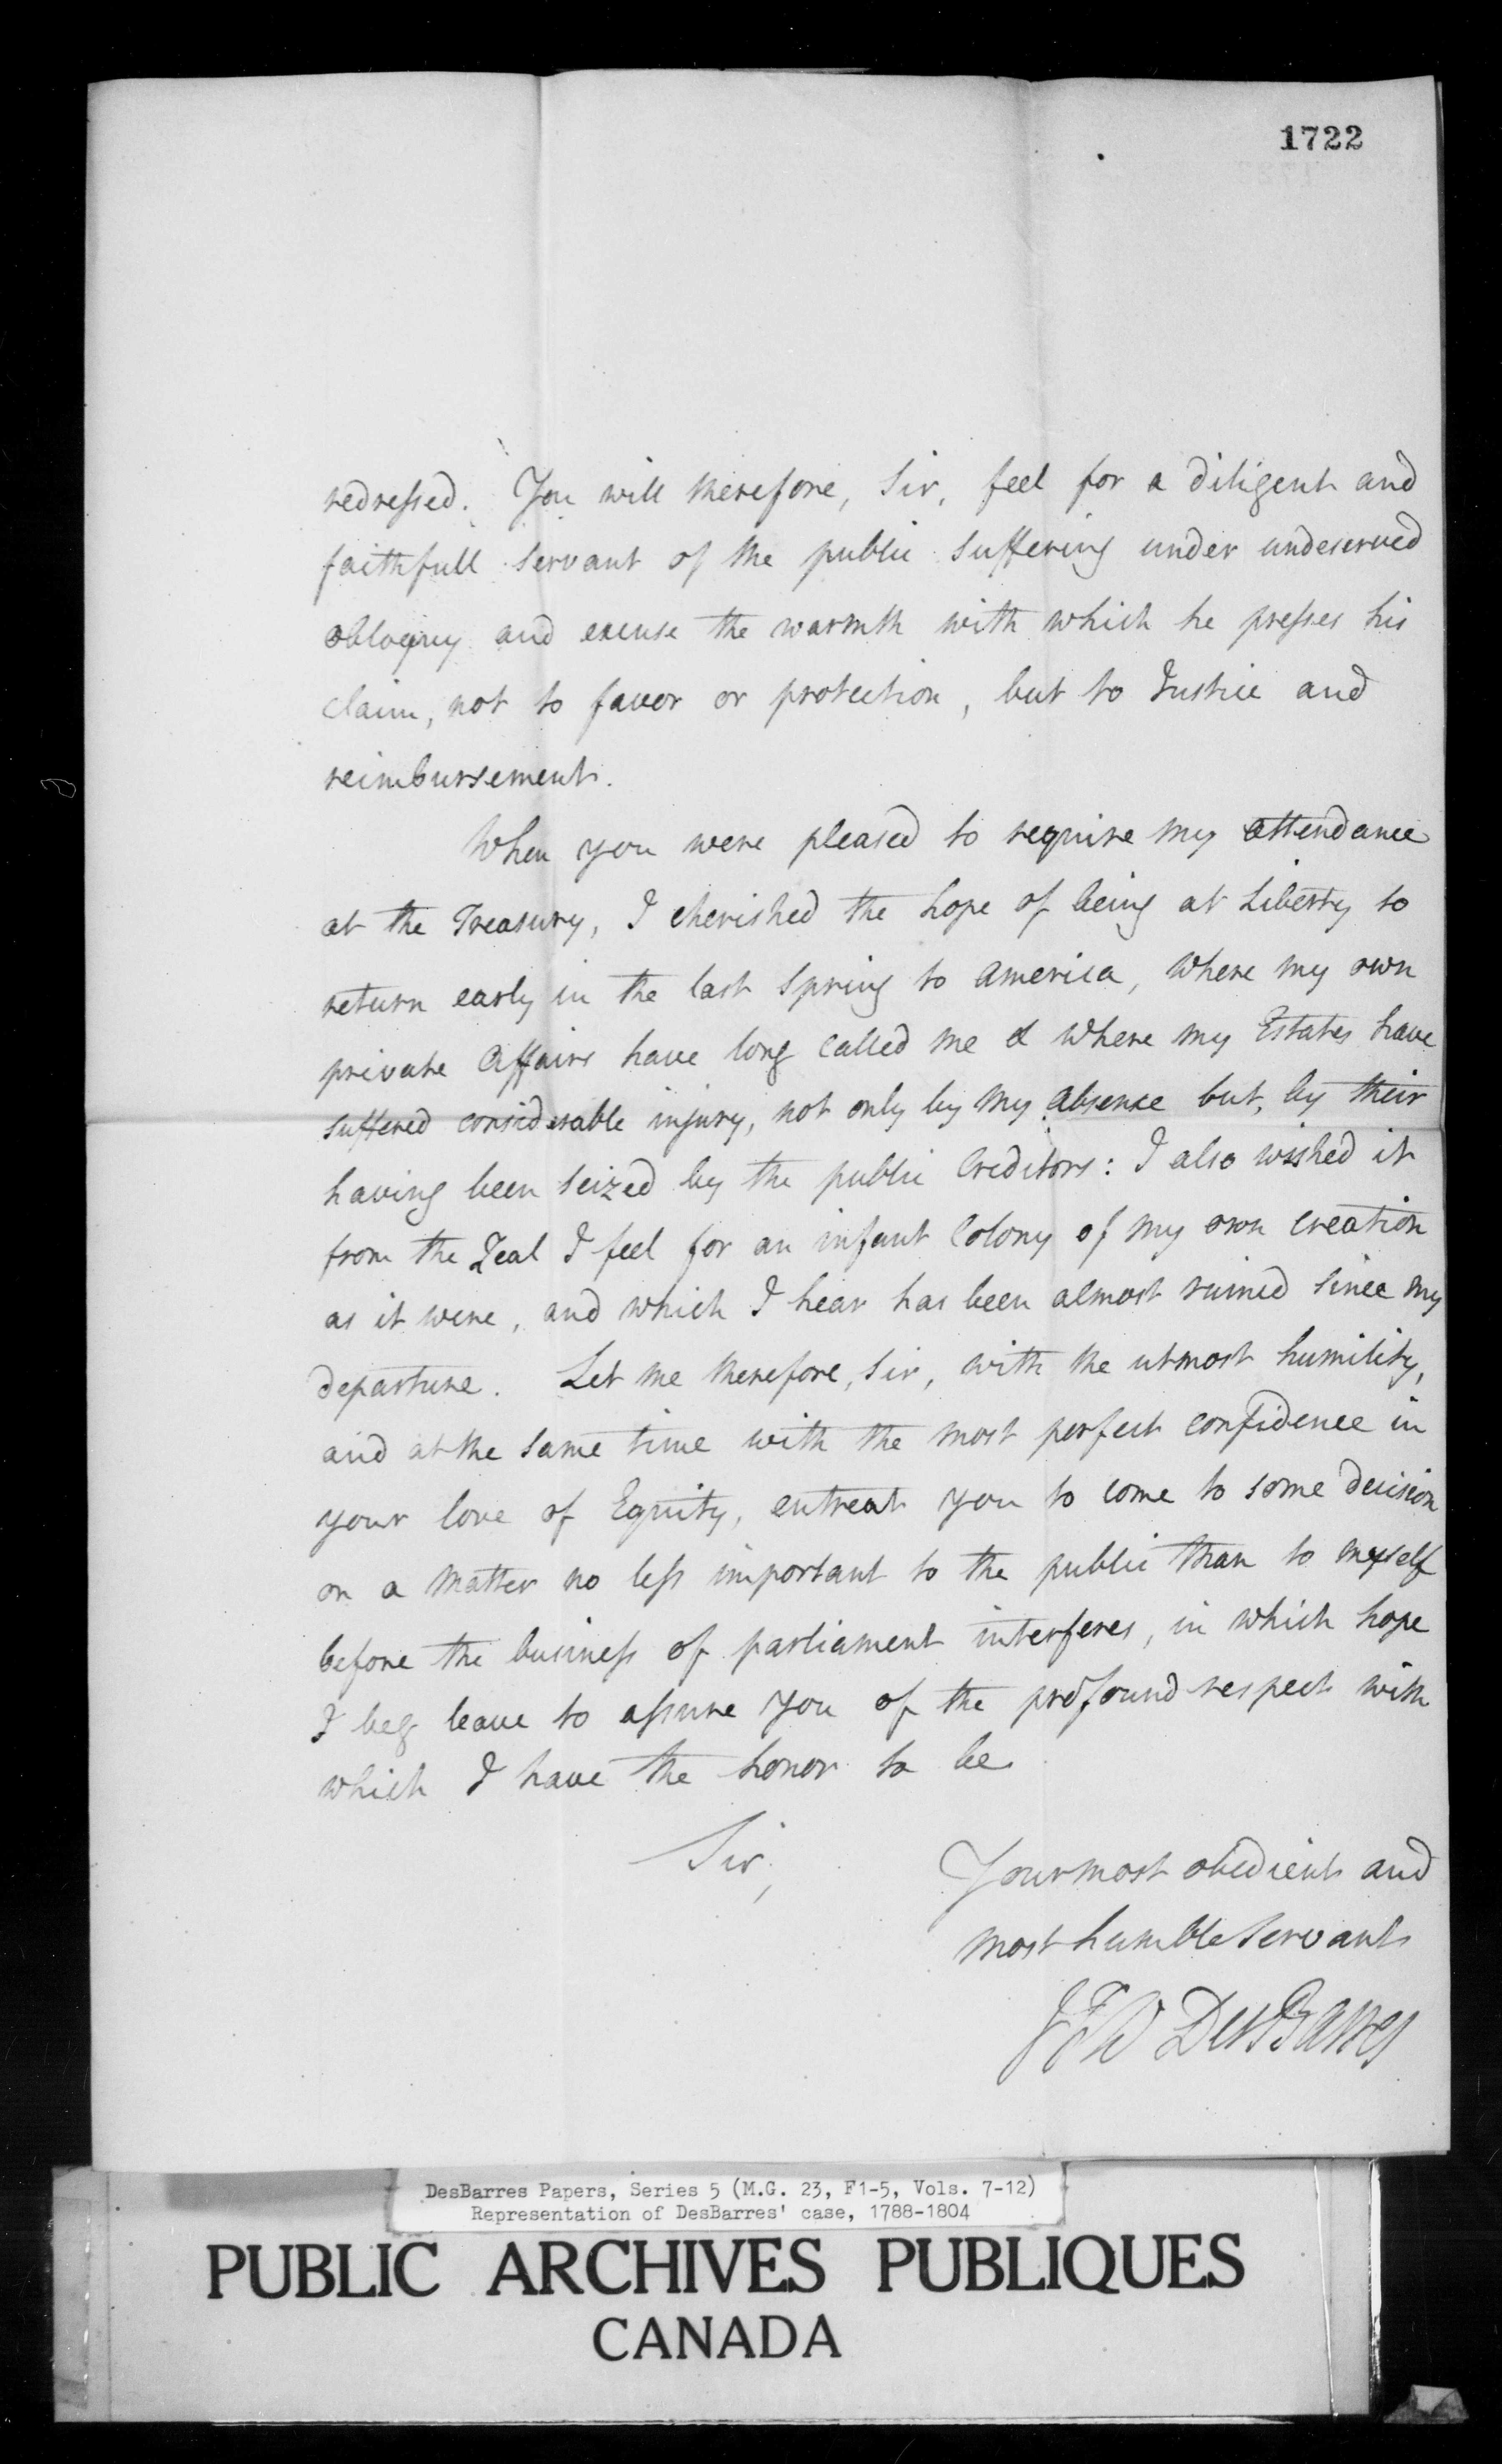 1722
redressed. You will therefore, Sir, feel for a diligent and
faithfull servant of the public suffering under undeserved
obloquy and excuse the warmth with which he presses his
claim, not to favor or protection, but to Justice and
reimbursement.
When you were pleased to require my attendance
at the Treasury, I cherished the hope of being at Liberty to
return early in the last Spring to America, where my own
private Affairs have long called me & where my Estates have
suffered considerable injury, not only by my absence but, by their
having been seized by the public Creditors: I also wished it
from the Zeal I feel for an infant Colony of my own creation
as it were, and which I hear has been almost ruined since my
departure. Let me therefore, Sir, with the utmost humility,
and at the same time with the most perfect confidence in
your love of Equity, entreat you to come to some decision
on a matter no less important to the public than to myself
before the business of parliament interferes, in which hope
I beg leave to assure you of the profound respect with
which I have the honor to be
Sir,
Your most obedient and
most humble Servant
JFW DesBarres
DesBarres Papers, Series 5 (M.G. 23, F1-5, Vols. 7-12)
Representation of DesBarres' case, 1788-1804
PUBLIC ARCHIVES PUBLIQUES
CANADA